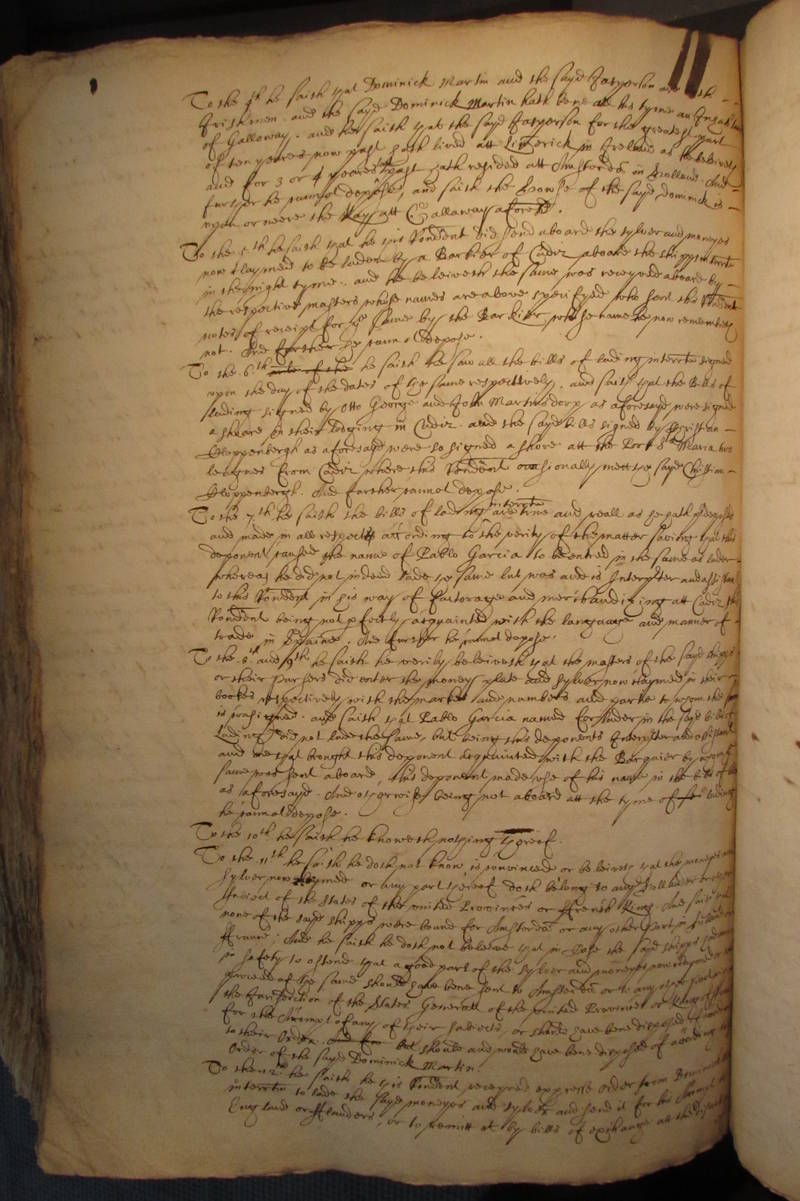 To the 4th he saith that Dominick Martin and the sayd Jasperson are both
Irishmen. and the sayd Dominick Martin hath bene all his tyme an Inhabitant
of Galloway. and he saith that the sayd Jasperson for the greatest part
of ten yeares now past hath lived att Limrick in Ireland as he beleiveth
and for 3 or 4 yeares last past hath resided att Amsterdam in Holland. And
further he cannot depose, and saith the howse of the sayd Dominick is
upon or neere the Kay att Gallaway aforesayd.
To the 5th he saith that he this Rendent did send aboard the sylver and moneyes
now claymed to be laden by a Barkier of Cadiz aboard the shipps interrate
in the night tyme. and he beleiveth the same was receyved aboard by
the respective masters whose names are above specifyed who sent this Rendent
notes of receipt for the same by the Barkier whose name he now remembreth
not. And further he cannot depose.
To the 6th he saith he saw all the bills of lading interrate signed
upon the day of the dates of the same respectively. and saith that the Bills of
lading signed by Otto George and John Martinsdorp as aforesayd were signed
a shoare in their lodging in Cadiz. and the sayd bills signed by Christian
Cloppenbergh as aforesayd were so signed a shore att the Port St Maria two
leagues from Cadiz where this Rendent occasionally mett the sayd Christian
Cloppenbergh. And further cannot depose.
To the 7th he saith the bills of lading interrate are true and reall as he hath deposed
and made in all respects according to the verity of the matter saving that this
deponent caused the name of Pablo Garcia to be entred in the same as lader
whereas he did not indeed lade the same but was and is Interpreter and assistant
to this Rendent in his way of factorage and merchandizing att Cadiz the
Rendent being not perfectly acquainted with the language and manner of
trade in Spaine. And further he cannot depose.
To the 8th and 9th he saith he verily beleiveth that the masters of the sayd shipps
or their pursers did enter the money plate and sylver now claymed in their
bookes respectively with the markes and numbers and partie to whom the same
is consigned. and saith that Pablo Garcia named for lader in the sayd bills of
Lading did not lade the same, but being this deponents Interpreter and assistant
and one that brought this deponent acquainted with the Barquier by whom the
same was sent aboard, this deponent made use of his name in the bills of lading
as aforesayd. And otherwise being not aboard att the tyme of lading
he cannot depose.
To the 10th he saith he knoweth nothing thereof.
To the 11th he saith he doth not know, is convinced or beleive that the moneyes and
sylver now claymed or any part thereof doth belong to any
Subject of the States of the united Provinces or ffrench King. And saith that
none of the sayd shipps were bound for Amsterdam or any other Port in
ffrance; And he saith he doth not beleeve that in Case the sayd shipps
in safety to Ostend that a good part of the sylver and moneyes now claymed or
proceed of the same should have bene sent to Amsterdam or to any other part
the Jurisdiction of the States Generall of the united Provinces or King of ffrance
for the Accompt of any of their subjects, or should have bene disposed
to their Order. but should and would have bene disposed of according to
Order of the sayd Dominick Martin.
To the 12th he saith he this Rendent receyved expresse order from Dominick
interrate to lade the sayd moneyes and sylver and send it for his Accompt
England or fflanders, or to remitt it by bills of exchange att the